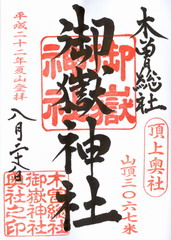 木曽総社
頂上奥社
御嶽神社
山頂三〇六七米
平成二十二年夏山登拝
八月二十八日
御嶽
神社
木曽総社
御嶽神社
奥社之印